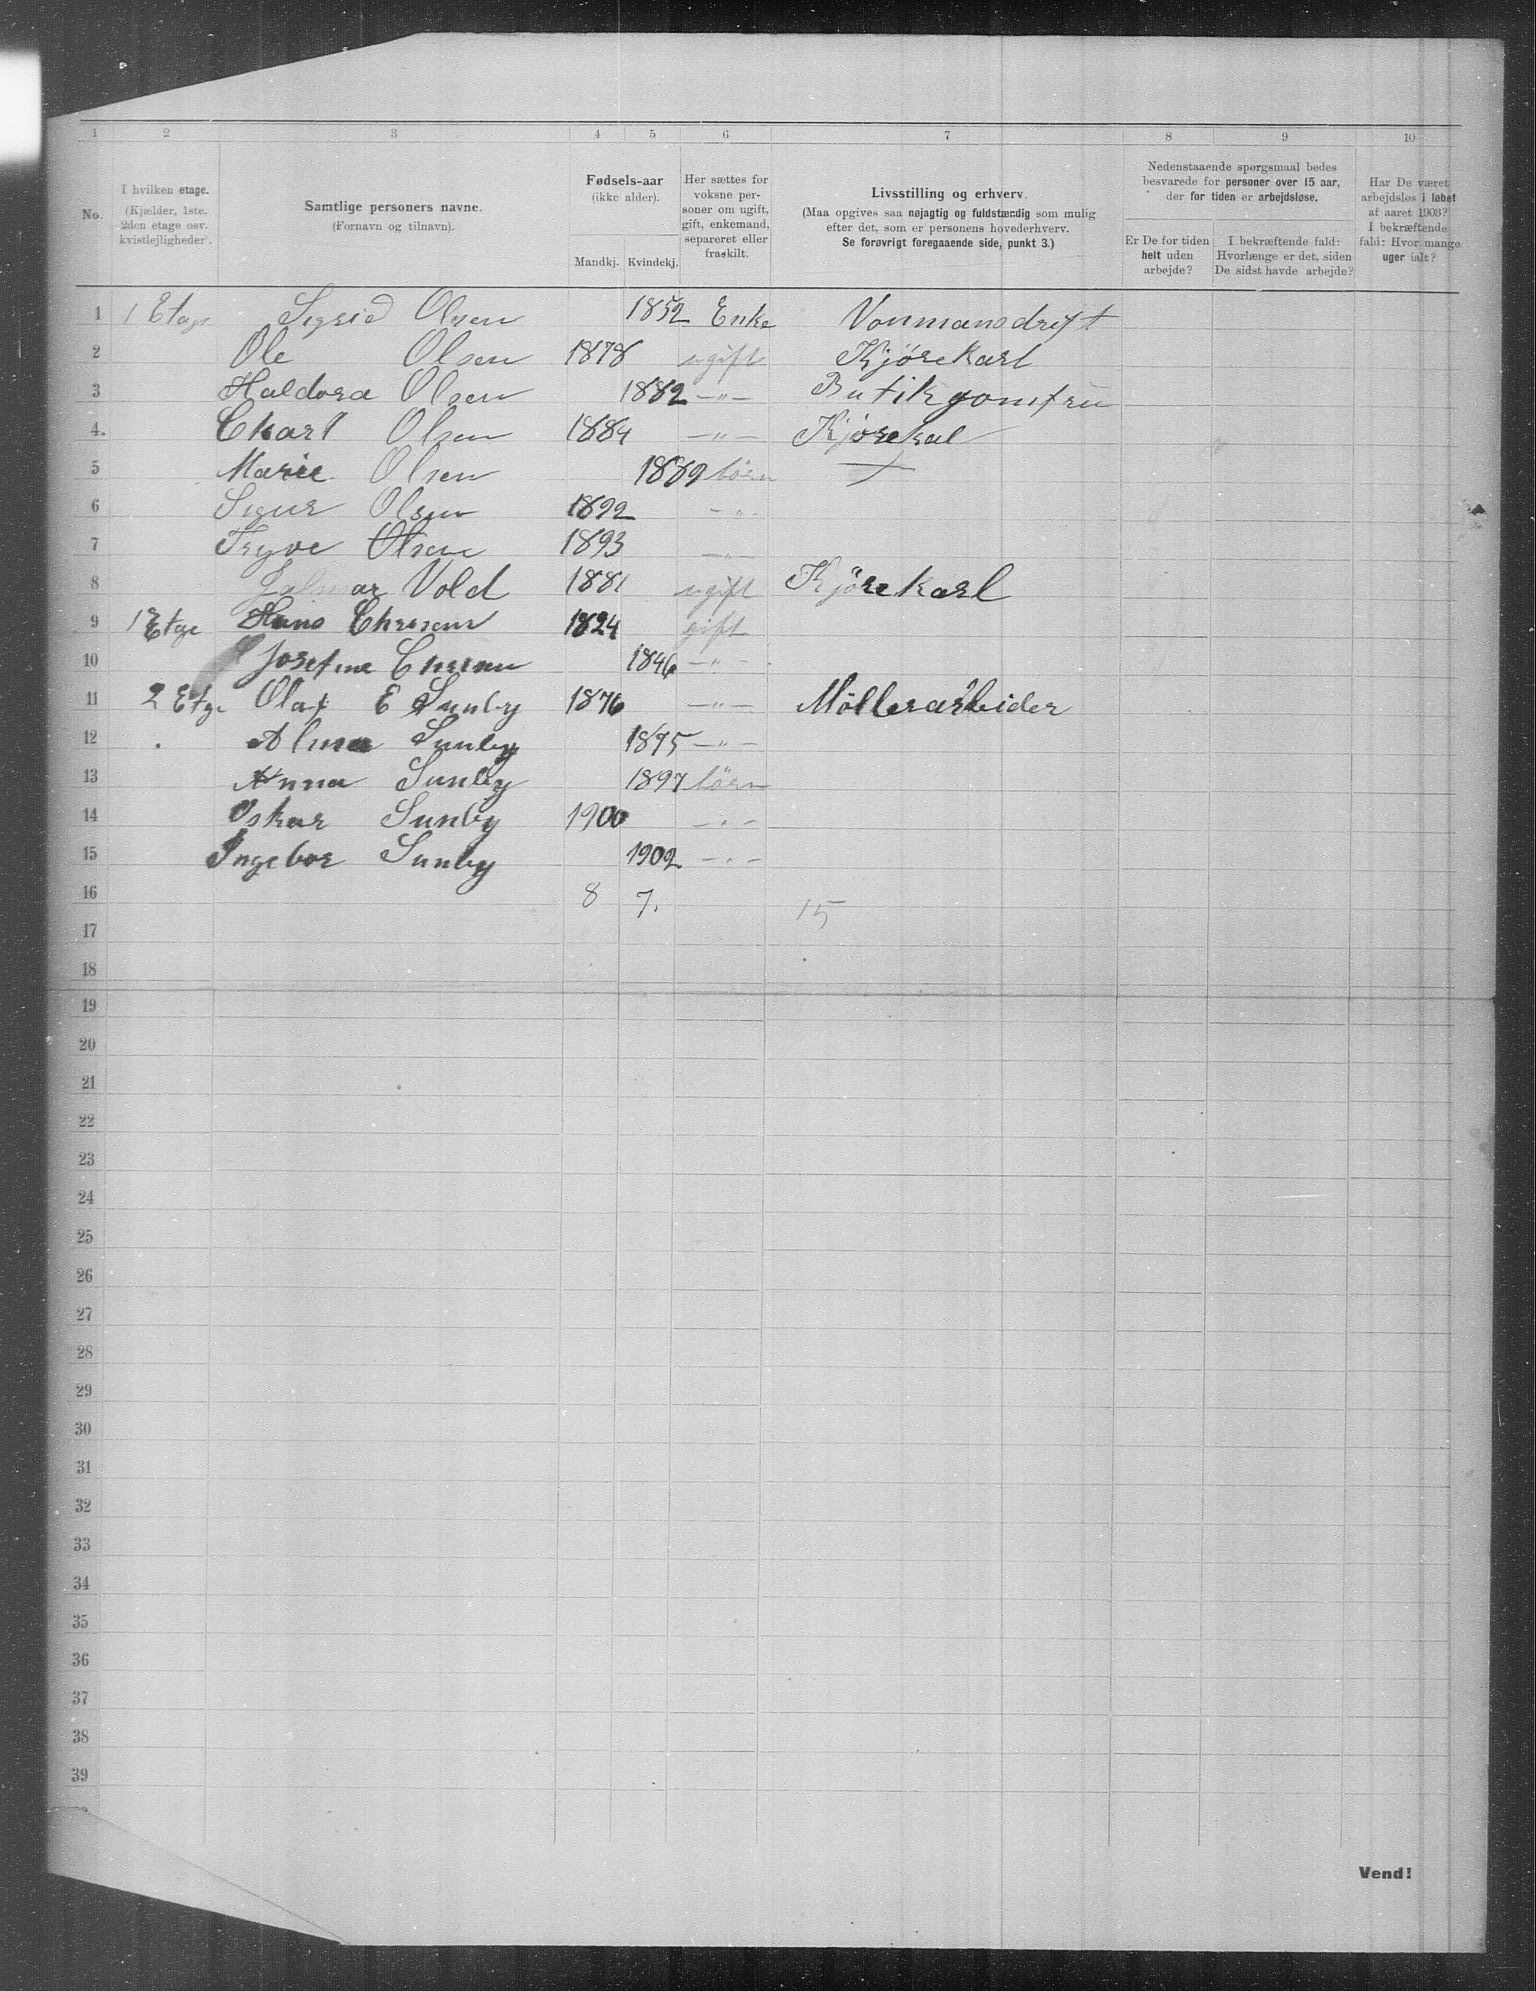 1 2 3 4 5 6 7 8 9 10
No.
I hvilken etage.
(Kjælder, 1ste.
2den etage osv.
kvistlejligheder).
Samtlige personers navne.
(Fornavn og tilnavn).
Fødsels-aar
(ikke alder).
Mandkj. Kvindekj.
Her sættes for
voksne per-
soner om ugift,
gift, enkemand,
separeret eller
fraskilt.
Livsstilling og erhverv.
(Maa opgives saa nøjagtig og fuldstændig som mulig
efter det, som er personens hovederhverv.
Se forøvrigt foregaaende side, punkt 3.)
Nedenstaaende spørgsmaal bedes
besvarede for personer over 15 aar,
der for tiden er arbejdsløse.
Er De for tiden
helt uden
arbejde?
I bekræftende fald:
Hvorlænge er det, siden
De sidst havde arbejde?
Har De været
arbejdsløs i løbet
af aaret 1903?
I bekræftende
fald: Hvor mange
uger ialt?
1 1 Etage Sigrid Olsen 1852 Enke Vonmansdreft
2 Ole Olsen 1878 ugift Kjørekarl
3 Haldora Olsen 1882 -„- Butikjomfru
4. Charl Olsen 1884 -„- Kjørekal
5 Marie Olsen 1889 börn
6 Sigur Olsen 1892 -„-
7 Tryve Olsen 1893 -„-
8 Jalmar Vold 1881 ugift Kjörekarl
9 1 Etge Hans 1824 gift
10 Josefine 1846 -„-
11 2 Etge Olaf E Sunby 1876 -„- Møllerarbeider
12 Alma Sunby 1875 -„-
13 Anna Sunby 1897 börn
14 Oskar Sunby 1900 -„-
15 Ingebor Sunby 1902 -„-
16 8 7. 15
17
18
19
20
21
22
23
24
25
26
27
28
29
30
31
32
33
34
35
36
37
38
39
Vend!